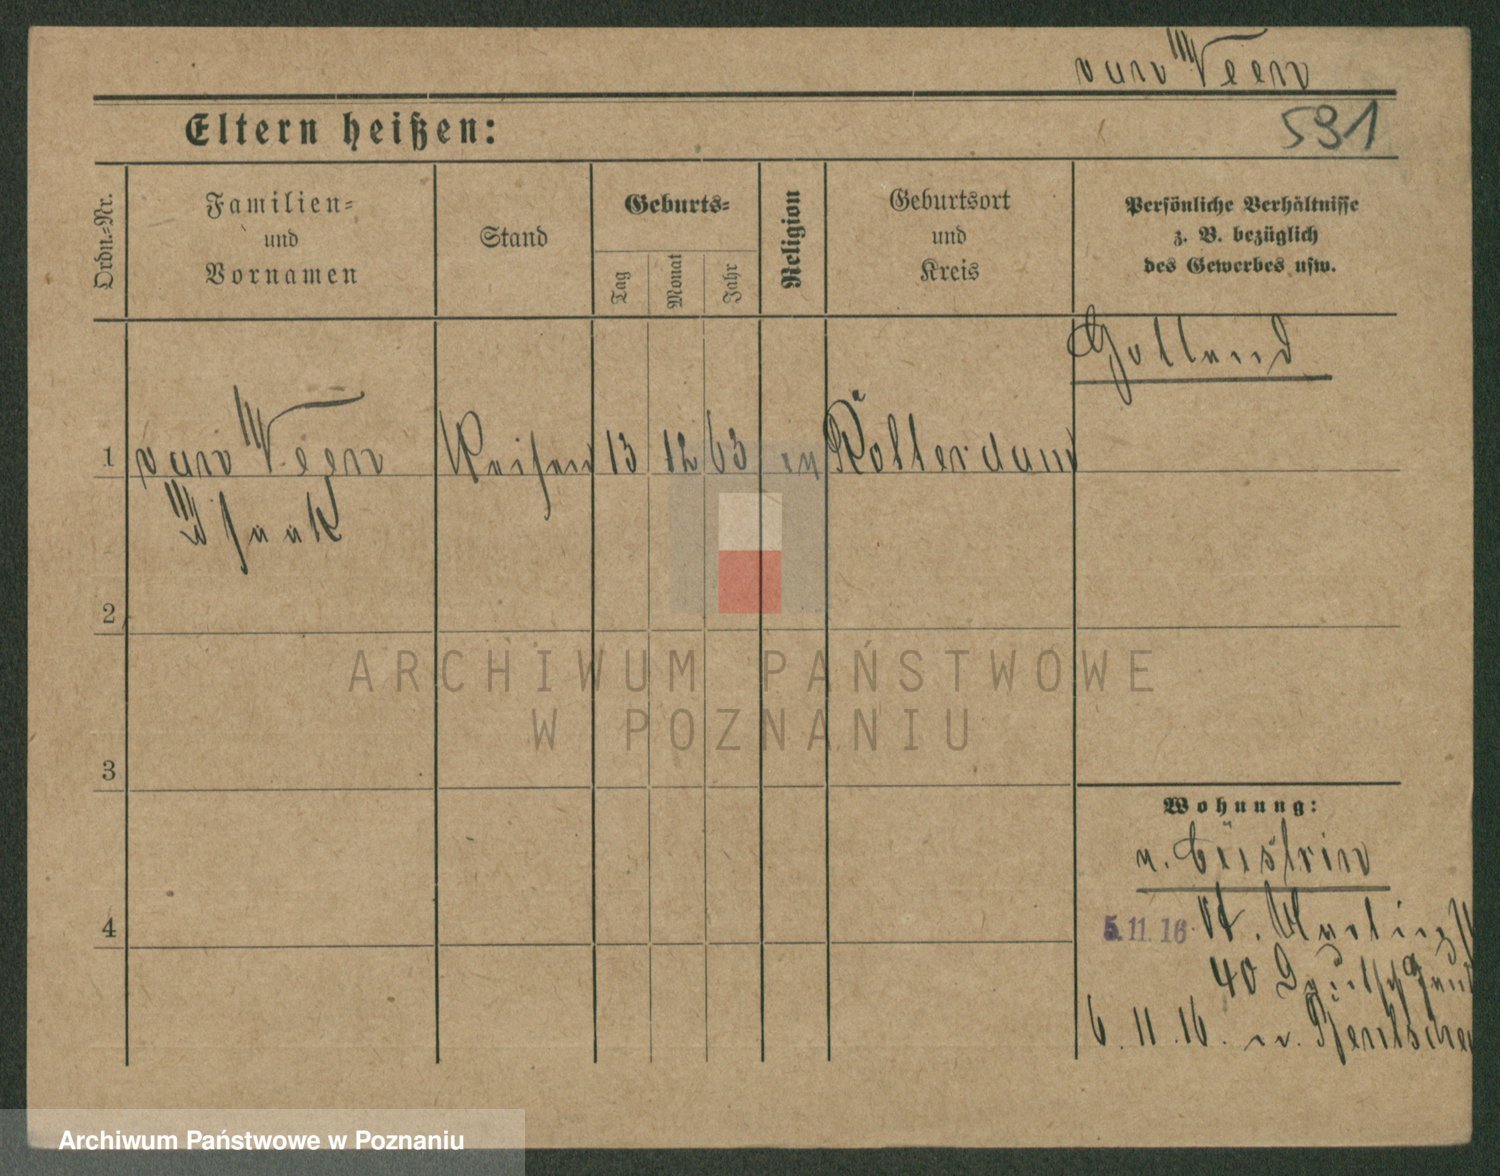 van Veen
591
Eltern heißen:
Ordn.-Nr.
Familien-
und
Vornamen
Stand
Geburts-
Tag
Monat
Jahr
Religion
Geburtsort
und
Kreis
Persönliche Verhältnisse
z. B. bezüglich
des Gewerbes usw.
Holland
1 van Veen 13 12 63 Rotterdam
Isaak
2
3
4
Wohnung:
v. Cüstrin
5.11.16 St. Martinst
40
6.11.16. n. Bentschen
ARCHIWUM PAŃSTWOWE
W POZNANIU
Archiwum Państwowe w Poznaniu